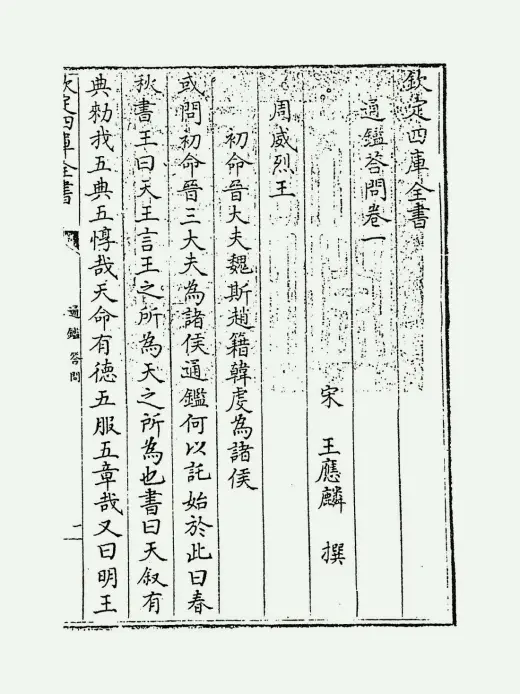 欽定四庫全書
通鑑答問卷一
宋 王應麟 撰
周威烈王
初命晉大夫魏斯趙籍韓虔為諸侯
或問初命晉三大夫為諸侯通鑑何以託始於此曰春
秋書王曰天王言王之所為天之所為也書曰天叙有
典勑我五典五惇哉天命有德五服五章哉又曰明王
欽定四庫全書
通鑑答問
一